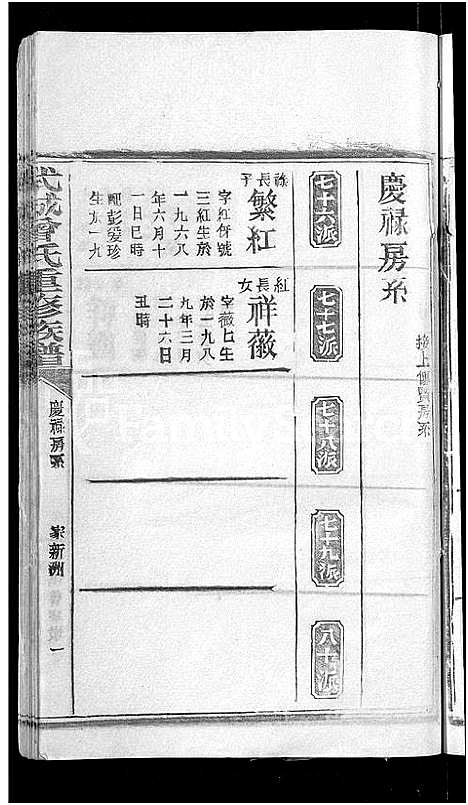 慶禄房系
接上傳賢房系
七十六派
七十七派
七十八派
七十九派
八十派
禄長子
繁紅
字紅併號
三紅生於
一九六八
年六月十
一日巳時
配彭爱珍
生於一九
紅長女
祥薇
字薇上生
於一九八
九年三月
二十六日
丑時
武城曾氏重修族譜
慶禄房系
家新洲
一